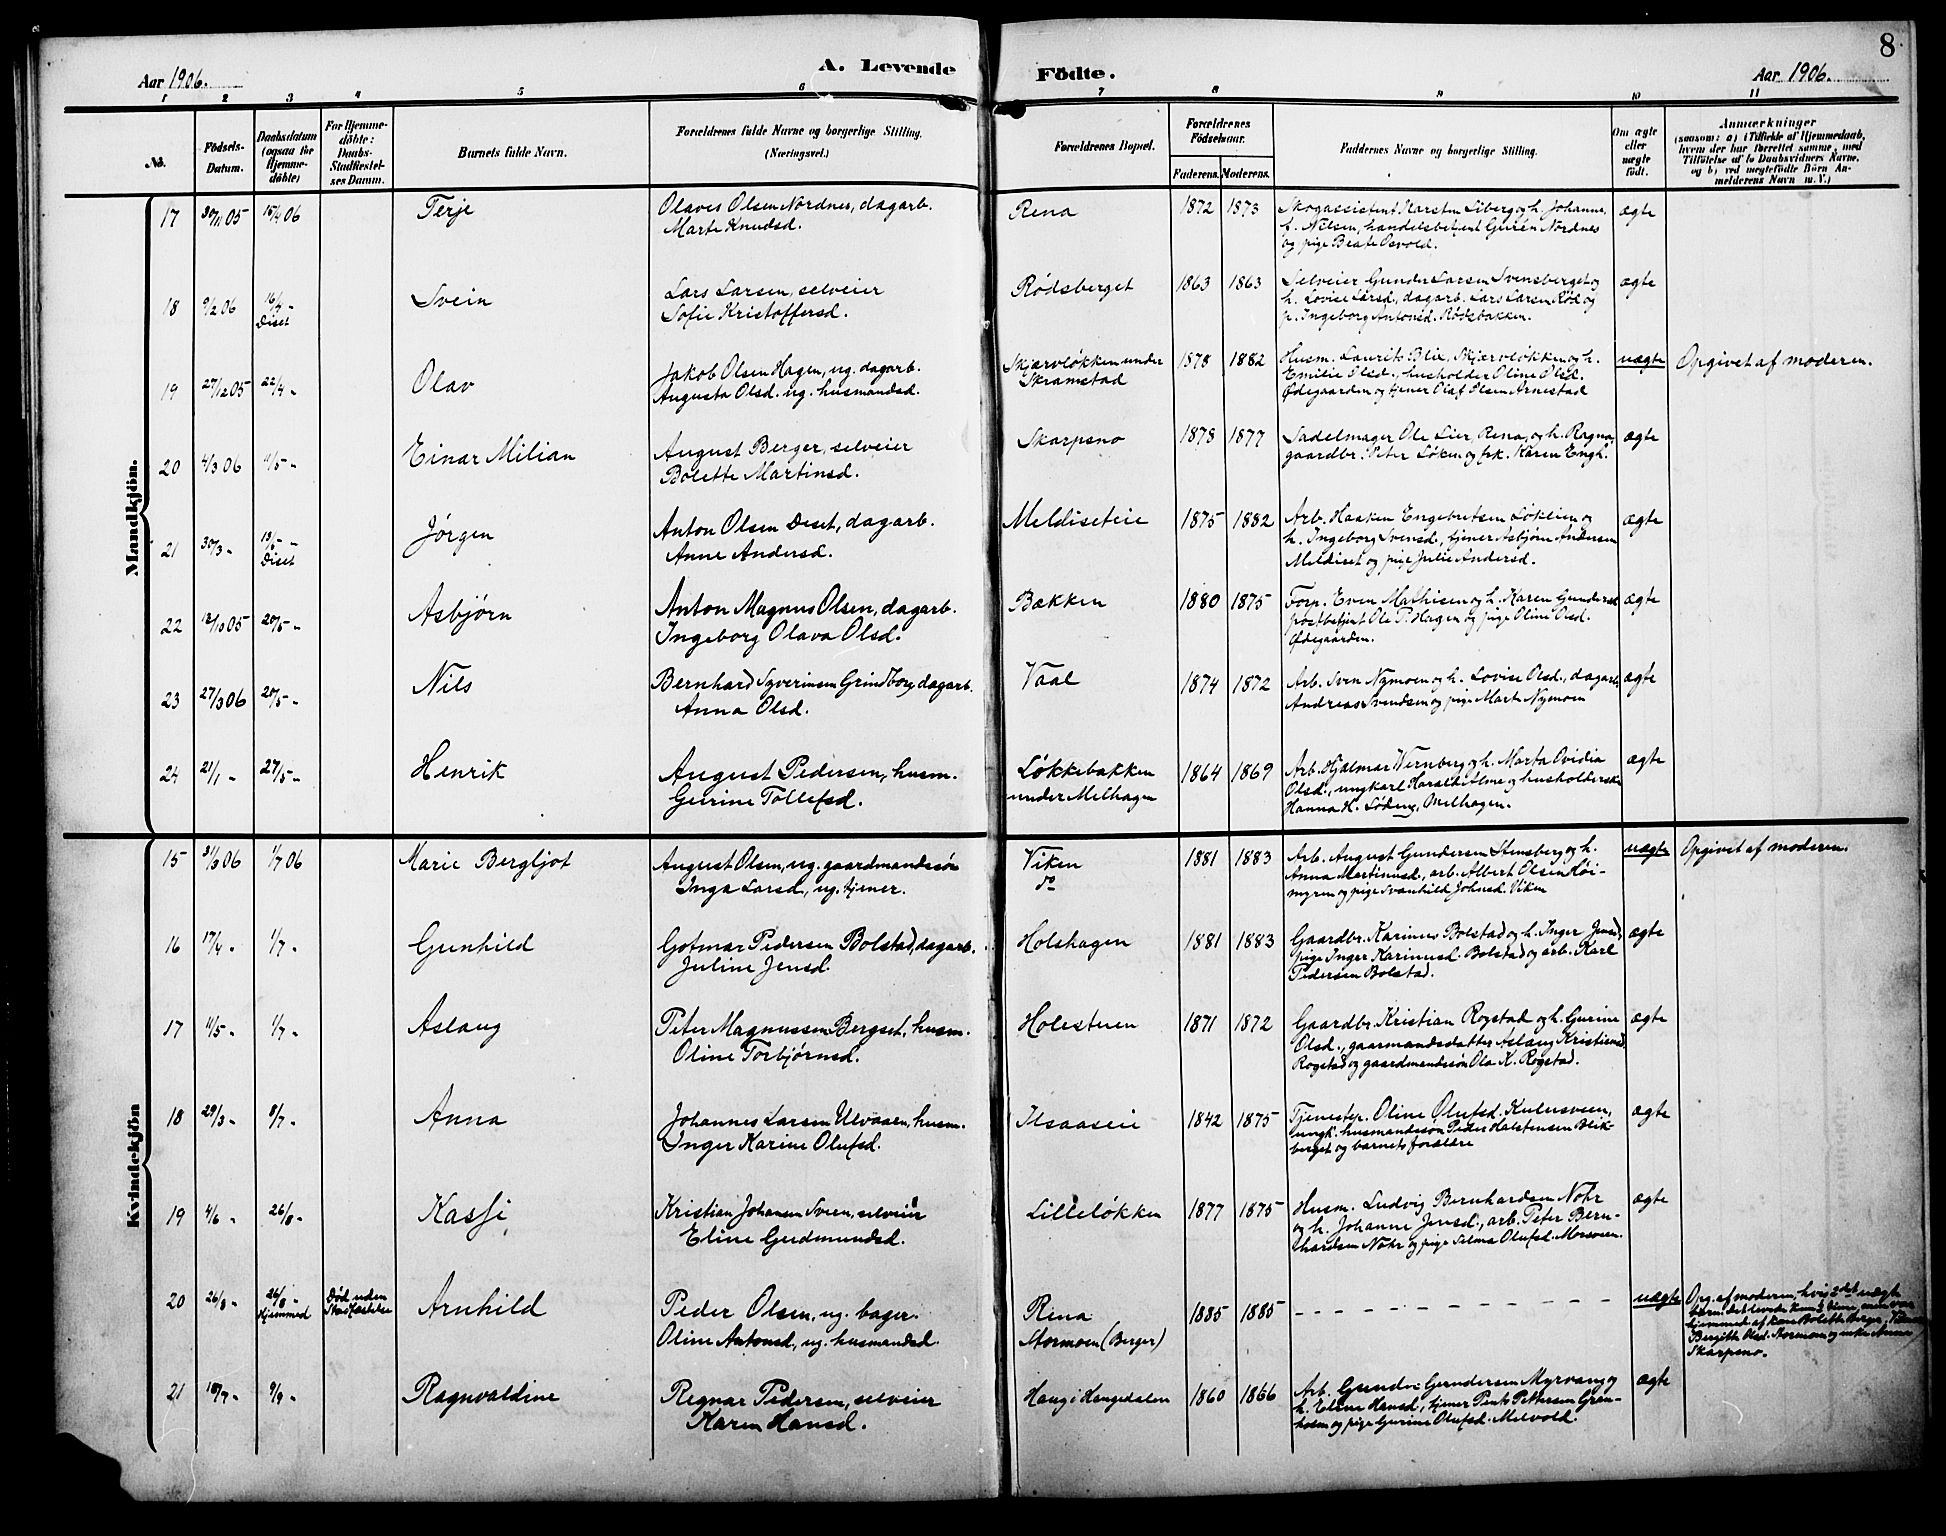 8
Aar 1906.
A. Levende
Födte.
Aar 1906.
1 2 3 4 5 6 7 8 9 10 11
No.
Födsels-
Datum.
Daabsdatum
(ogsaa for
Hjemme-
döbte)
For Hjemme-
döbte:
Daabs-
Stadfæstel-
ses Datum.
Barnets fulde Navn.
Forældrenes fulde Navne og borgerlige Stilling.
(Næringsvei.)
Forældrenes Bopæl.
Forældrenes
Födselsaar.
Faderens. Moderens.
Faddernes Navne og borgerlige Stilling.
Om ægte
eller
uægte
födt.
Anmærkninger
(saasom: a) i Tilfælde af Hjemmedaab,
hvem der har forrettet samme, med
Tilföielse af to Daabsvidners Navne,
og b) ved uægtefödte Börn An-
melderens Navn m. V.)
Mandkjön.
17 30/11 05 15/4 06 Terje Olaves Olsen Nordnes, dagarb.
Marte Knudsd.
Rena 1872 1873 Skogassistent Karsten Liberg og h. Johanne,
f. Nilsen, handelsbetjent Nordnes
og pige Beate Osvold.
ægte
18 9/2 06 16/4 -
Diset
Svein Lars Larsen, selveier
Sofie Kristoffersd.
Rødsberget 1863 1863 Selveier Gunder Larsen Svensberget og
h. Lovise Larsd., dagarb. Lars Larsen Rød og
p. Ingeborg Antonsd. Rødsbakken.
ægte
19 27/12 05 22/4 - Olav Jakob Olsen Hagen, ug. dagarb.
Augusta Olsd. ug. husmandsd.
Skjærvløkken under
Skramstad
1878 1882 Husm. Laurits Blix, Skjærvløkken og h.
Emilie Olsd., husholder Oline Olsd.
Ødegaarden og tjener Olaf Olsen Arnestad
uægte Opgivet af moderen.
20 4/3 06 /5 - Einar Milian August Berger, selveier
Bolette Martinsd.
Skarpsno 1878 1877 Sadelmager Ole Lier, Rena, og h. Ragna,
gaardbr. Peter Løken og frk. Karen Engh.
ægte
21 30/3 - 13/5 -
Diset
Jørgen Anton Olsen Deset, dagarb.
Anne Andersd.
Meldiseteie 1875 1882 Arb. Haaken Engebretsen Løklien og
h. Ingeborg Svensd., tjener Asbjørn Andersen
Meldiset og pige Julie Andersd.
ægte
22 12/10 05 20/5 - Asbjørn Anton Magnus Olsen, dagarb.
Ingeborg Olava Olsd.
Bækken 1880 1875 Forp. Even Mathisen og h. Karen Gundersd.
postbetjent Ole P. Hagen og pige Oline Olsd.
Ødegaarden.
ægte
23 27/3 06 20/5 - Nils Bernhard Syverinsen Grindborg dagarb.
Anna Olsd.
Vaal 1874 1872 Arb. Sven Nymoen og h. Lovise Olsd., dagarb.
Andreas Svendsen og pige Mart. Nymoen
ægte
24 21/1 - 27/5 - Henrik August Pedersen, husm.
Gurine Tollefsd.
Løkkebakken
under Melhagen
1864 1869 Arb. Hjalmar Wernberg og h. Marta Ovidia
Olsd., ungkarl Harald Alme og husholderske
Hanna H. Løding, Melhagen.
ægte
Kvindekjön
15 31/3 06 1/7 06 Marie Bergljot August Olsen, ug. gaardmandssøn
Inga Larsd., ug. tjener.
Viken
do
1881 1883 Arb. August Gundersen Stensberg og h.
Anna Martinusd., arb. Albert Olsen Røi-
myren og pige Svanhild Johnsd. Viken
uægte Opgivet af moderen.
16 17/4 - 1/7 - Gunhild Gotmar Pedersen Bolstad, dagarb.
Juline Jensd.
Holshagen 1881 1883 Gaardbr. Karinus Bolstad og h. Inger Jensd,
pige Inger Karinusd. Bolstad og arb. Karl
Pedersen Bolstad.
ægte
17 11/5 - 1/7 - Aslaug Peter Magnussen Bergset, husm.
Oline Torbjørnsd.
Holesteren 1871 1872 Gaardbr. Kristian Rogstad og h. Gurine
Olsd., gaarmandsdatter Aslaug Kristiansd.
Rogstad og gaardmandssøn Ola K. Rogstad.
ægte
18 29/3 - 8/7 - Anna Johannes Larsen Ulvaaen, husm.
Inger Karine Olufsd.
Ilsaaseie 1842 1875 Tjenestep. Oline Olufsd. Kulusveen,
ungk. husmandssøn Peder Halstensen Blik-
berget og barnets forældre
ægte
19 4/6 - 26/8 - Kasfi Kristian Johansen Sveen, selveier
Eline Gudmundsd.
Lilleløkken 1877 1875 Husm. Ludvig Bernhardsen Nohr
og h. Johanne Jensd., arb. Peter Bern-
hardsen Nohr og pige Selma Olufsd. Mosveen.
ægte
20 26/8 - 26/8 -
Hjemmed
Død uden
Stadfæstelse
Arnhild Peder Olsen, ug. bager.
Oline Antonsd., ug. husmandsd.
Rena
Stormoen (Berger)
1885 1885 - - - - - - - - - -
uægte Opg. af moderen, hvis 2det uægte
barn. Det levede kun timer, men var
hjemmed. af kone Bolette Berger.
Bergitte Olsd. Stormoen og enke Anne
Skarpsno.
21 18/7 - 9/9 - Ragnvaldine Regnar Pedersen, selveier
Karen Hansd.
Haug i Haugedalen 1860 1866 Arb. Gundersen Myrvang og
h. Eline Hansd., tjener Pettersen Gran-
holm og pige Gurine Olufsd. Melvold.
ægte